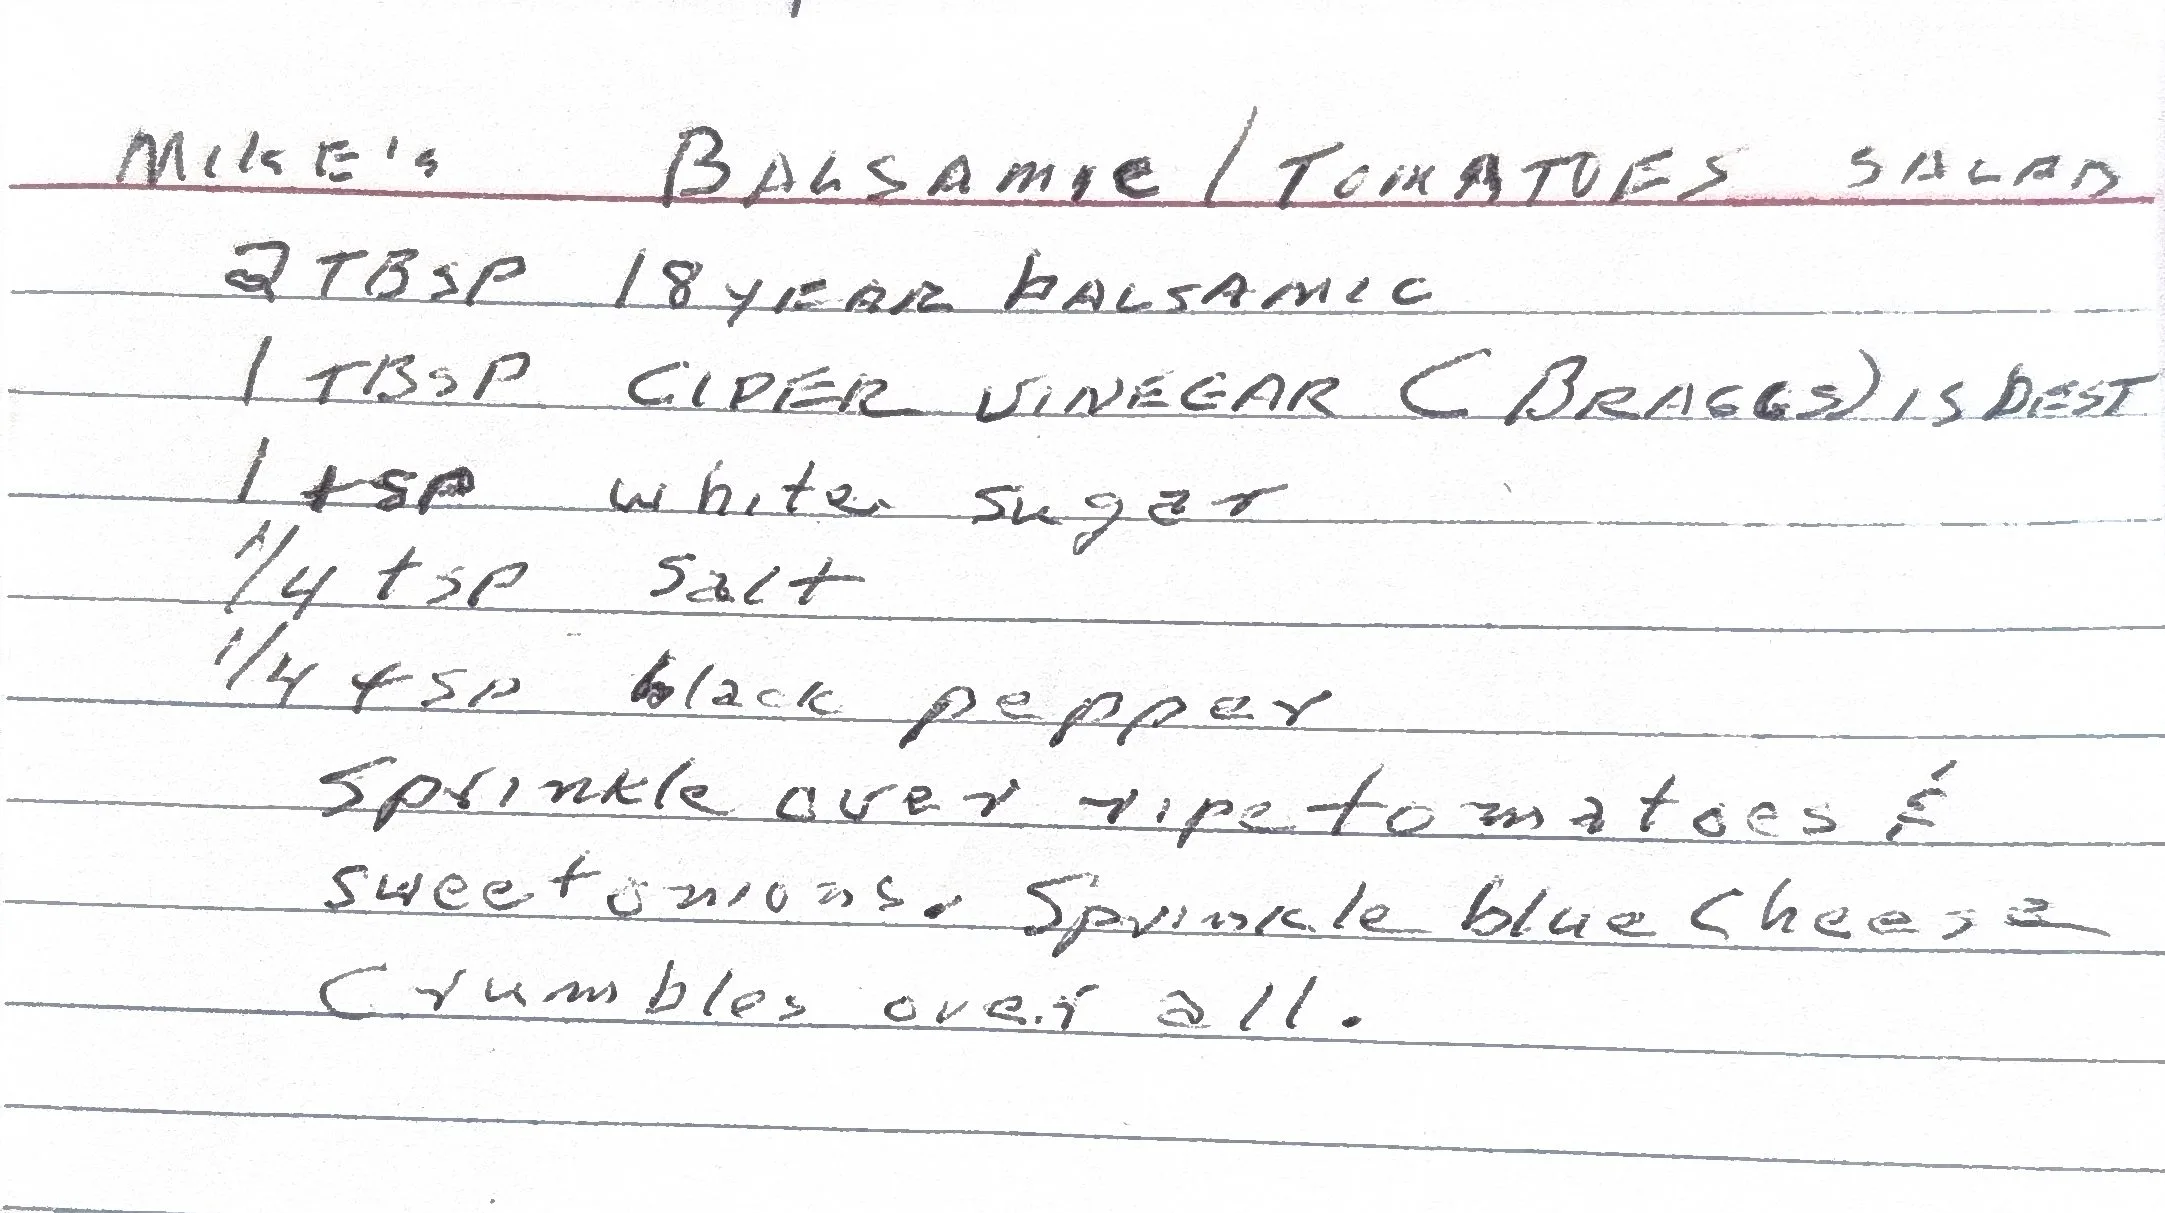 MIKE's BALSAMIC/TOMATOES SALAD
2 TBSP 18 YEAR BALSAMIC
1 TBSP CIDER VINEGAR (BRAGGS) IS BEST
1 tsp white sugar
1/4 tsp salt
1/4 tsp black pepper
Sprinkle over ripe tomatoes &
sweet onions. Sprinkle blue Cheese
Crumbles over all.